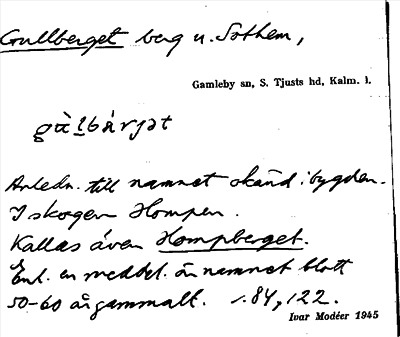 Gullberget berg n. Sothem,
Gamleby sn, S. Tjusts hd, Kalm. l.
Anledn. till namnet okänd i bygden.
I skogen Hompen.
Kallas även Hompberget.
Enl. en meddel. är namnet blott
50-60 år gammalt. 1.84,122.
Ivar Modéer 1945